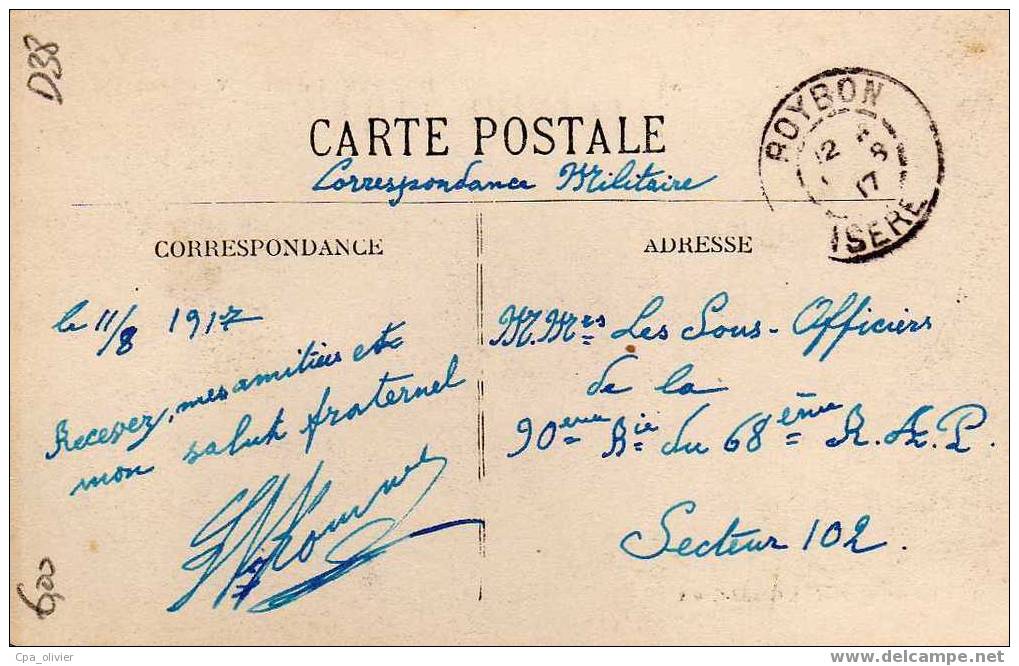 D38
CARTE POSTALE
Correspondance Militaire
ROYBON
12 8
17
ISERE
CORRESPONDANCE
le 11/8 1917
Recevez, mes amitiés et
mon salut fraternel
ADRESSE
M.Mrs Les Sous-Officiers
de la
90ème Bie du 68ème R. A. P.
Secteur 102.
6,00
Cpa_olivier
www.delcampe.net